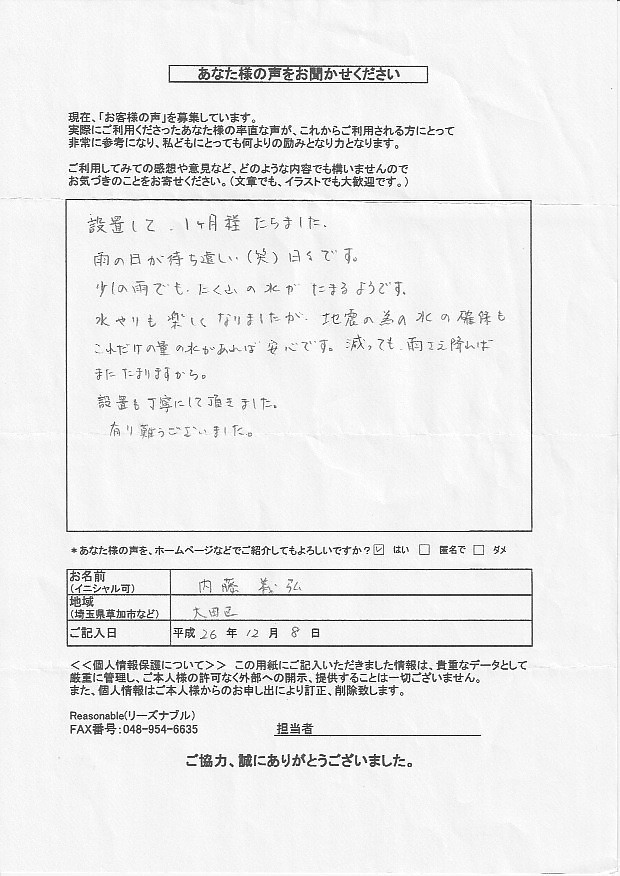 あなた様の声をお聞かせください
現在、「お客様の声」を募集しています。
実際にご利用くださったあなた様の率直な声が、これからご利用される方にとって
非常に参考になり、私どもにとっても何よりの励みとなり力となります。
ご利用してみての感想や意見など、どのような内容でも構いませんので
お気づきのことをお寄せください。(文章でも、イラストでも大歓迎です。)
設置して、1ヶ月程たちました。
雨の日が待ち遠しい(笑)日々です。
少しの雨でも、たく山の水がたまるようです。
水やりも楽しくなりましたが、地震の為の水の確保も
これだけの量の水があれば安心です。減っても、雨さえ降れば
またたまりますから。
設置も丁寧にして頂きました。
有り難うございました。
*あなた様の声を、ホームページなどでご紹介してもよろしいですか? ☑ はい □ 匿名で □ ダメ
お名前
(イニシャル可) 内藤義弘
地域
(埼玉県草加市など) 大田区
ご記入日 平成 26 年 12 月 8 日
<<個人情報保護について>> この用紙にご記入いただきました情報は、貴重なデータとして
厳重に管理し、ご本人様の許可なく外部への開示、提供することは一切ございません。
また、個人情報はご本人様からのお申し出により訂正、削除致します。
Reasonable(リーズナブル)
FAX番号:048-954-6635 担当者
ご協力、誠にありがとうございました。